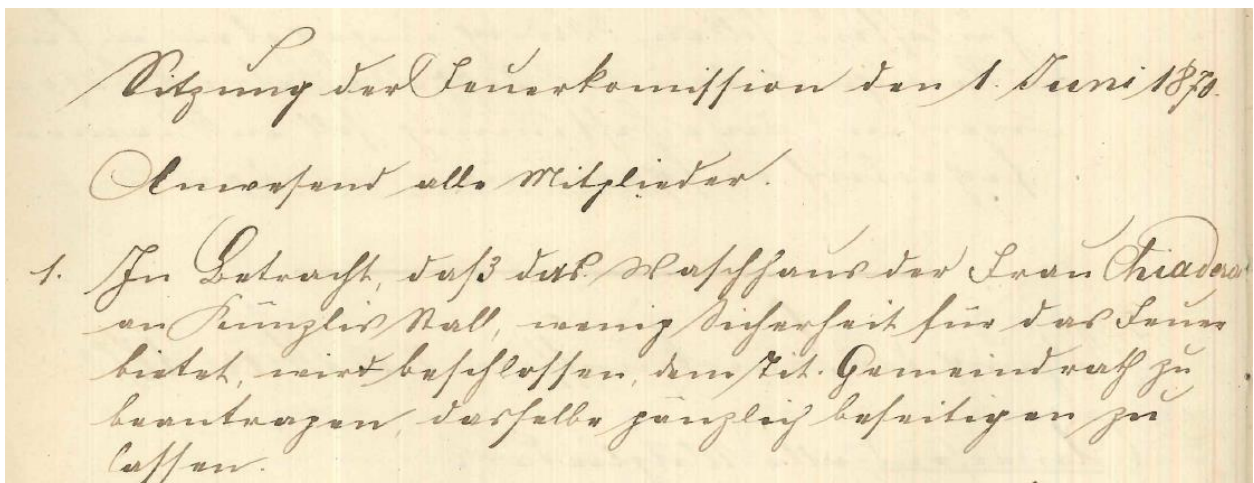 Sitzung der Feuerkomission den 1. Juni 1870.
Anwesend alle Mitglieder.
1. In Betracht, daß das Waschhaus der Frau Chiadera
an Künzlis Stall, wenig Sicherheit für das Feuer
bietet, wird beschlossen, dem Tit. Gemeindrath zu
beantragen, dasselbe gänzlich beseitigen zu
lassen.